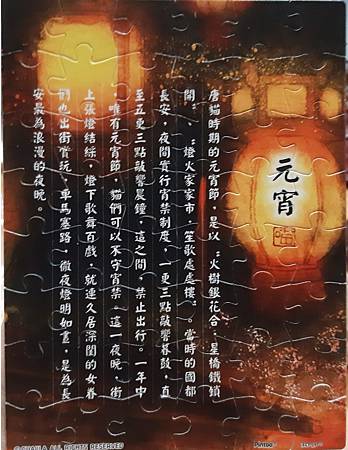 元宵
唐貓時期的元宵節，是以〝火樹銀花合，星橋鐵鎖
開〞、〝燈火家家市，笙歌處處樓〞。當時的國都
長安，夜間實行宵禁制度，一更三點敲響暮鼓，直
至五更三點敲響晨鐘，這之間，禁止出行。一年中
，唯有元宵節，貓們可以不守宵禁。這一夜晚，街
上張燈結綵，燈下歌舞百戲，就連久居深閨的女眷
們也出街賞玩，車馬塞路，徹夜燈明如晝，是為長
安最為浪漫的夜晚。
ALL RIGHTS RESERVED
Pintoo